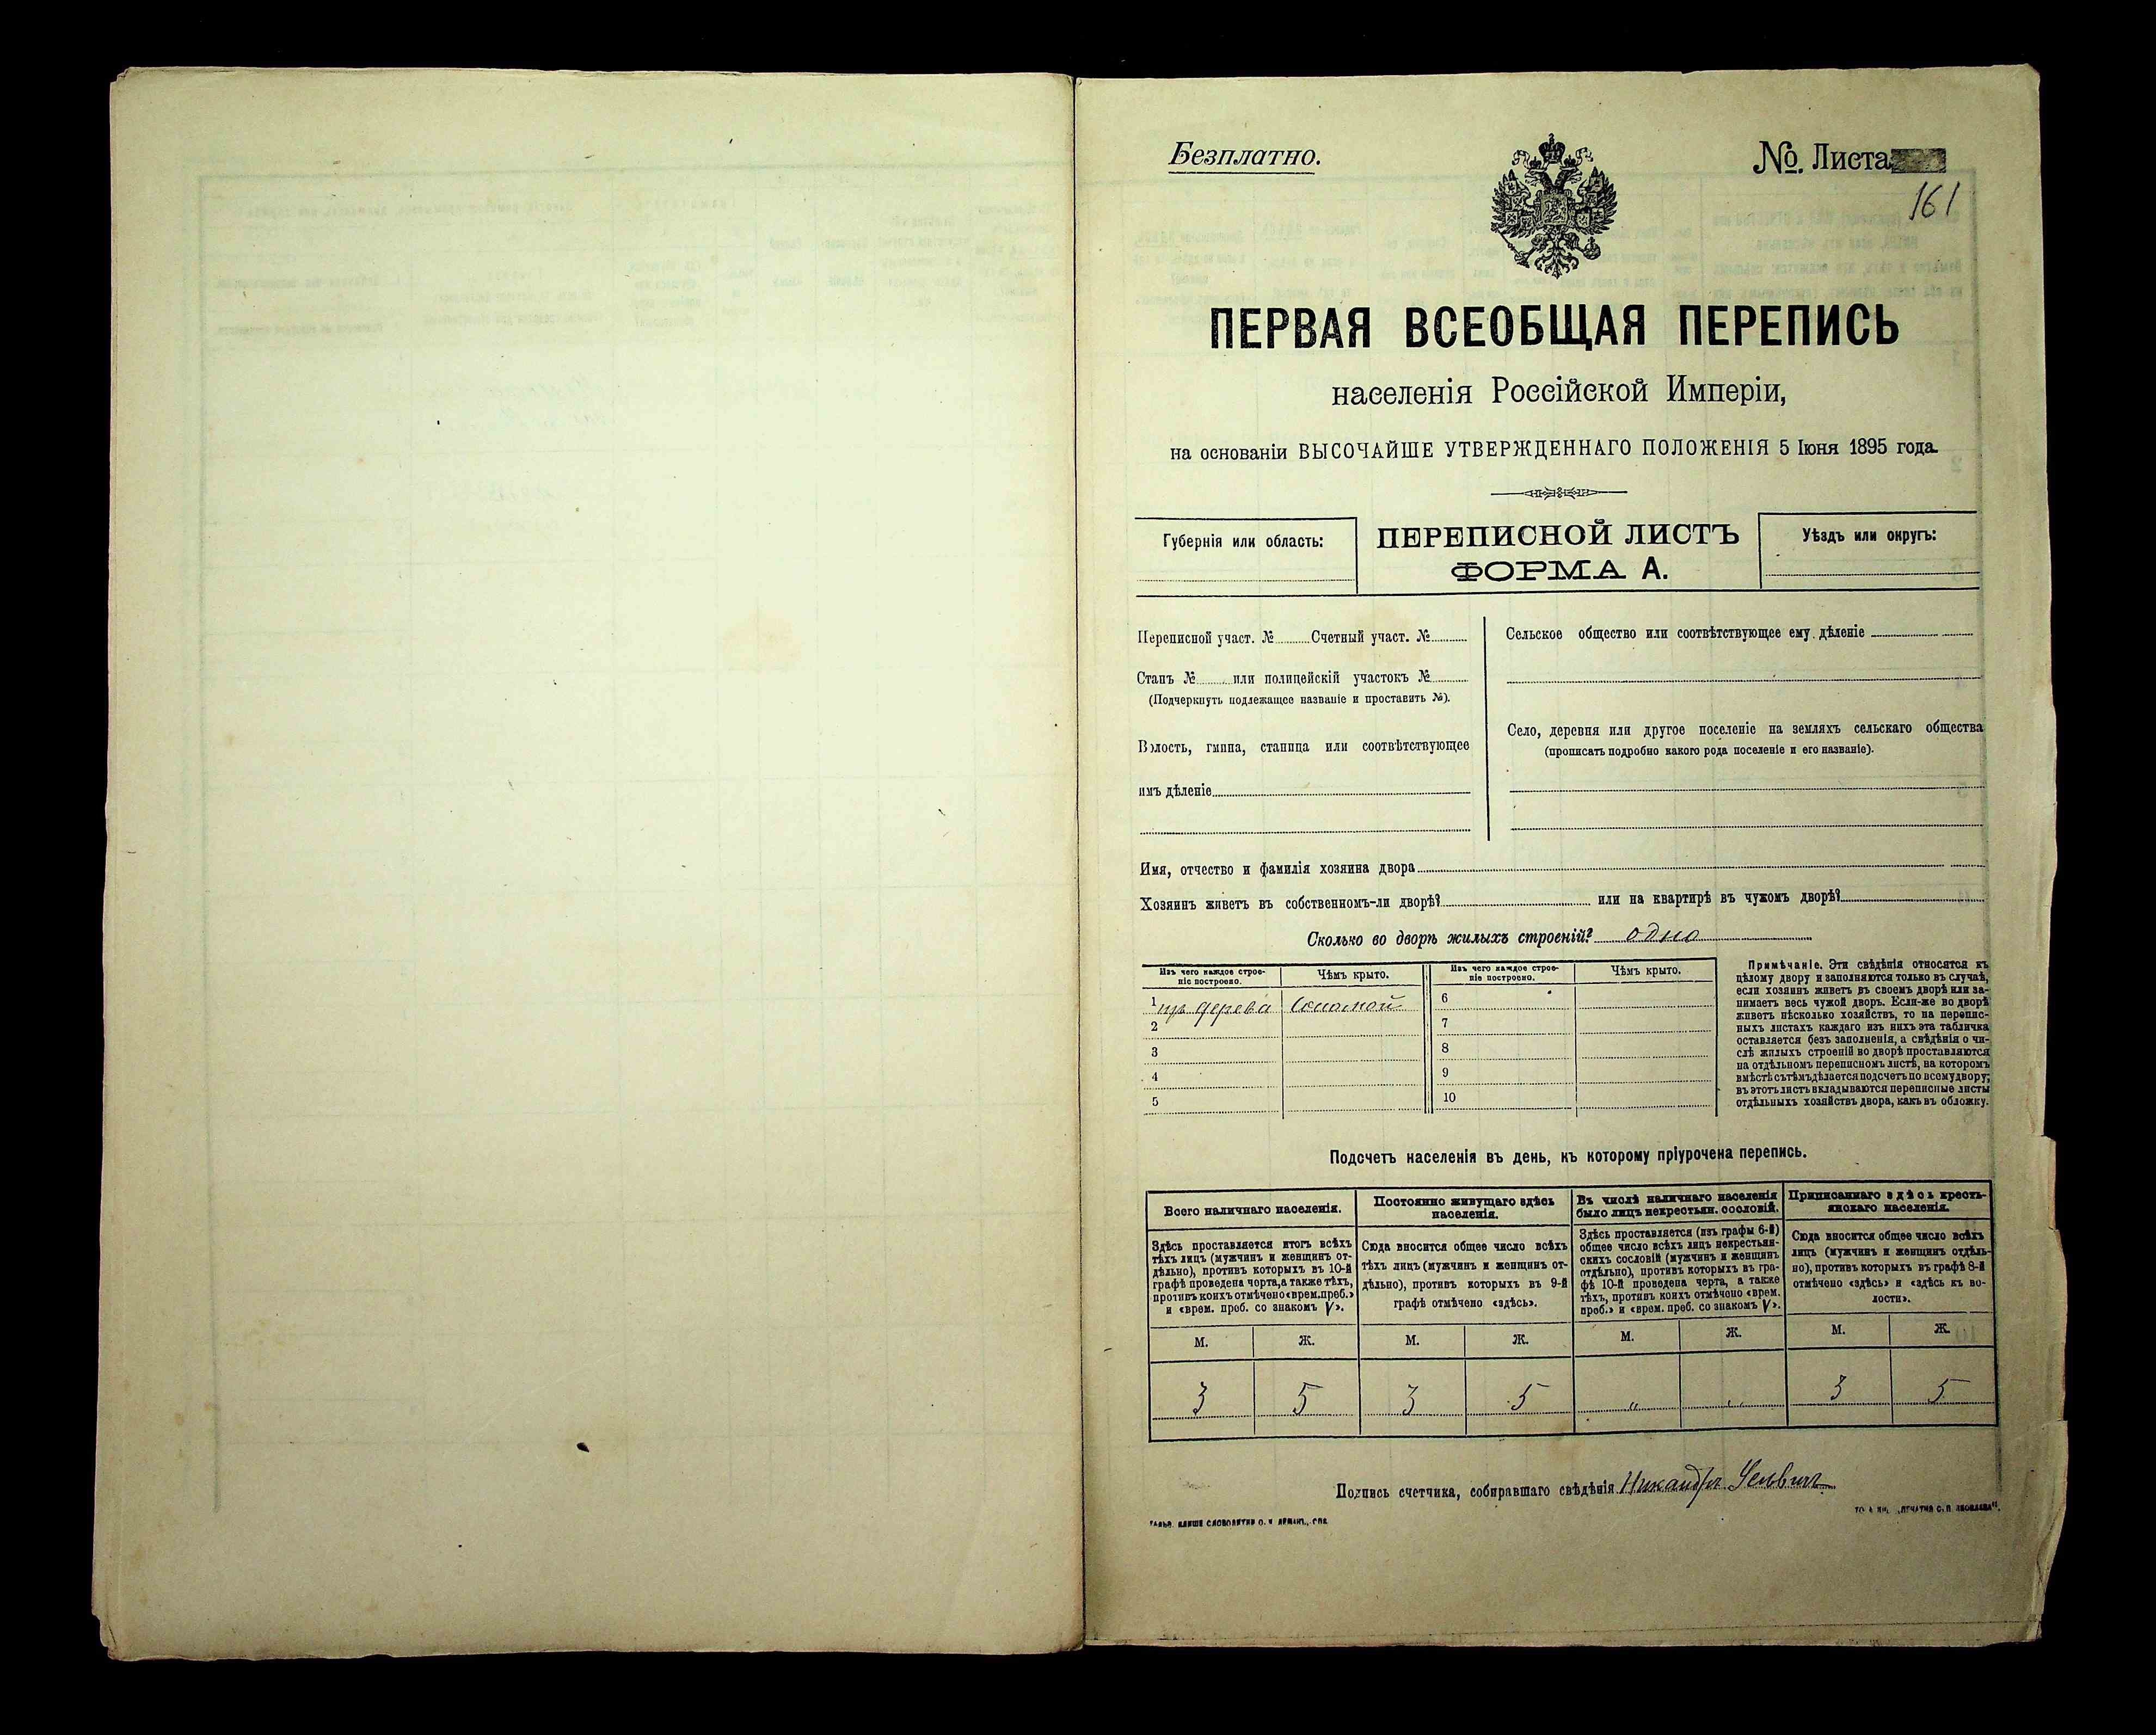 Безплатно.
№. Листа
161
ПЕРВАЯ ВСЕОБЩАЯ ПЕРЕПИСЬ
населенія Россійской Имперіи,
на основаніи ВЫСОЧАЙШЕ УТВЕРЖДЕННАГО ПОЛОЖЕНІЯ 5 Іюня 1895 года.
Губернія или область:
ПЕРЕПИСНОЙ ЛИСТЪ
ФОРМА А.
Уѣздъ или округъ:
Переписной участ. № Счетный участ. №
Станъ № или полицейскій участокъ №
(Подчеркнуть подлежащее названіе и проставить №).
Волость, гмина, станица или соотвѣтствующее
имъ дѣленіе
Сельское общество или соотвѣтствующее ему дѣленіе
Село, деревня или другое поселеніе на земляхъ сельскаго общества
(прописать подробно какого рода поселеніе и его названіе).
Имя, отчество и фамилія хозяина двора
Хозяинъ живетъ въ собственномъ-ли дворѣ? или на квартирѣ въ чужомъ дворѣ?
Сколько во дворѣ жилыхъ строеній? одно
Изъ чего каждое строе-
ніе построено.
Чѣмъ крыто.
1 изъ дерева Соломой
2
3
4
5
Изъ чего каждое строе-
ніе построено.
Чѣмъ крыто.
6
7
8
9
10
Примѣчаніе. Эти свѣдѣнія относятся къ
цѣлому двору и заполняются только въ случаѣ,
если хозяинъ живетъ въ своемъ дворѣ или за-
нимаетъ весь чужой дворъ. Если-же во дворѣ
живетъ нѣсколько хозяйствъ, то на перепис-
ныхъ листахъ каждаго изъ нихъ эта табличка
оставляется безъ заполненія, а свѣдѣнія о чи-
слѣ жилыхъ строеній во дворѣ проставляются
на отдѣльномъ переписномъ листѣ, на которомъ
вмѣстѣ съ тѣмъ дѣлается подсчетъ по всему двору;
въ этотъ листъ вкладываются переписные листы
отдѣльныхъ хозяйствъ двора, какъ въ обложку.
Подсчетъ населенія въ день, къ которому пріурочена перепись.
Всего наличнаго населенія.
Здѣсь проставляется итогъ всѣхъ
тѣхъ лицъ (мужчинъ и женщинъ от-
дѣльно), противъ которыхъ въ 10-й
графѣ проведена чорта, а также тѣхъ,
противъ коихъ отмѣчено «врем. преб.»
и «врем. преб. со знакомъ V».
Постоянно живущаго здѣсь
населенія.
Сюда вносится общее число всѣхъ
тѣхъ лицъ (мужчинъ и женщинъ от-
дѣльно), противъ которыхъ въ 9-й
графѣ отмѣчено «здѣсь».
Въ числѣ наличнаго населенія
было лицъ некрестьян. сословій.
Здѣсь проставляется (изъ графы 6-й)
общее число всѣхъ лицъ некрестьян-
скихъ сословій (мужчинъ и женщинъ
отдѣльно), противъ которыхъ въ гра-
фѣ 10-й проведена черта, а также
тѣхъ, противъ коихъ отмѣчено «врем.
преб.» и «врем. преб. со знакомъ V».
Приписаннаго здѣсь кресть-
янскаго населенія.
Сюда вносится общее число всѣхъ
лицъ (мужчинъ и женщинъ отдѣль-
но), противъ которыхъ въ графѣ 8-й
отмѣчено «здѣсь» и «здѣсь къ во-
лости».
М. Ж. М. Ж. М. Ж. М. Ж.
3 5 3 5 " " 3 5
Подпись счетчика, собиравшаго свѣдѣнія Никандръ